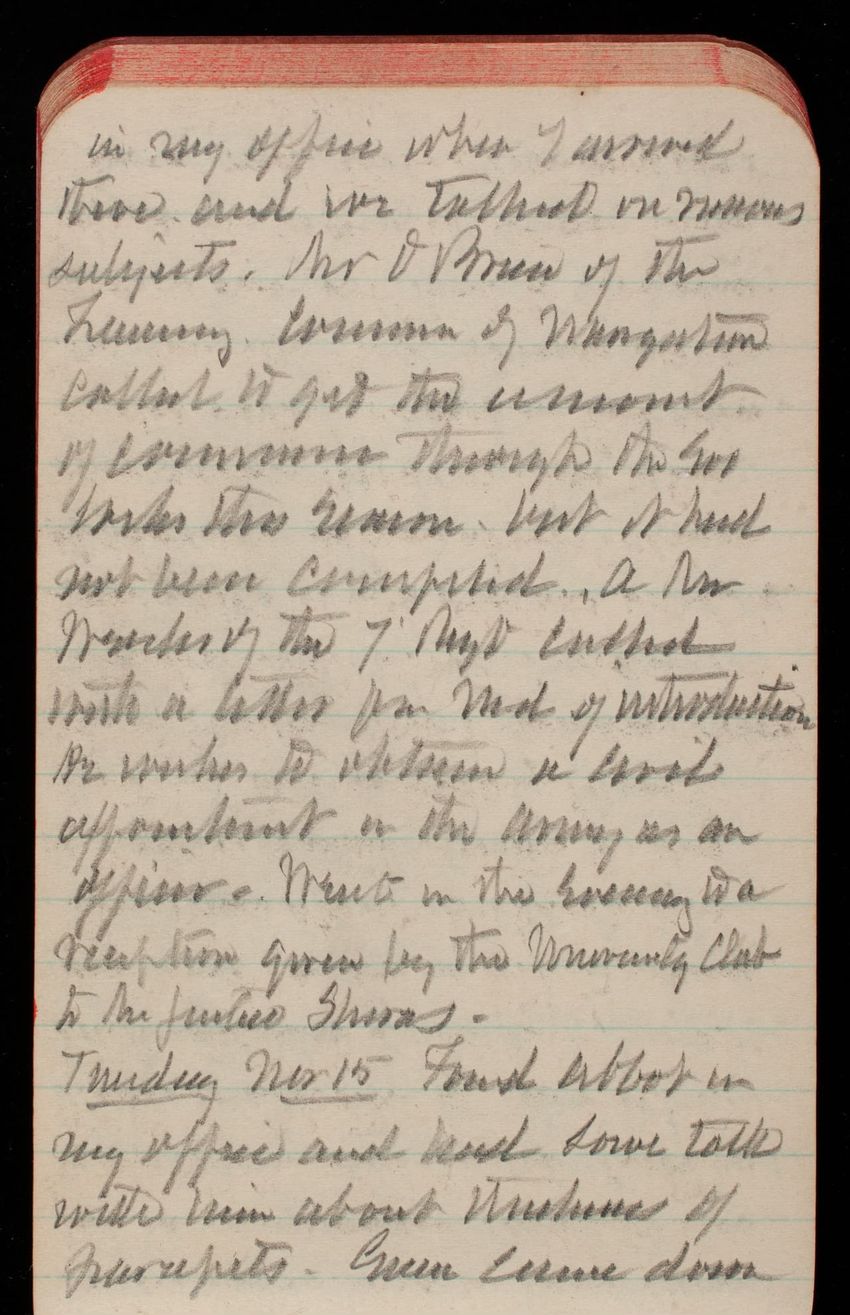 in my office when I arrived
there and we talked on various
subjects. Mr O Brien of the
Treasury. Commr of Navigation
called to get the amount
of commerce through the Soo
locks this season. but it had
not been completed. A Mr
of the 7' Regt called
with a letter from of introduction
He wishes to obtain a civil
appointment in the Army as an
officer. Went in the evening to a
reception given by the University Club
to Mr Justice Shiras -
Tuesday Nov 15 Found Abbot in
my office and had some talk
with him about thickness of
parapets. Green came down